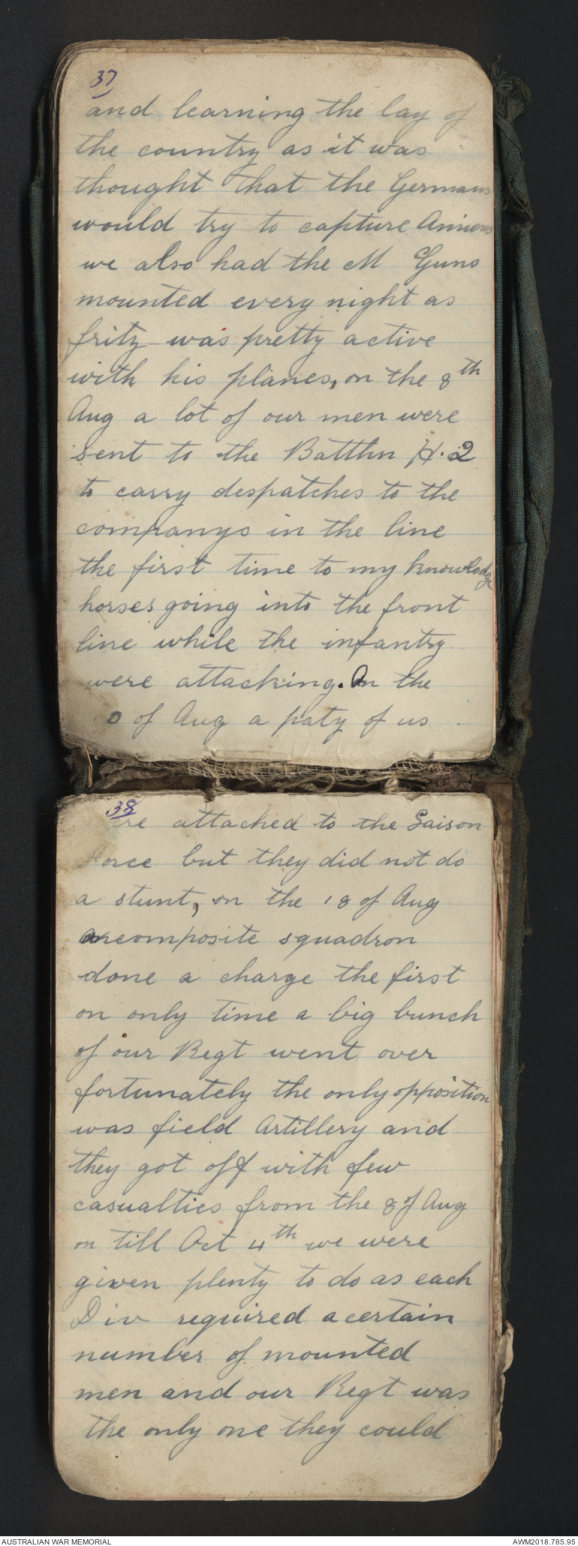 37
and learning the lay of
the country as it was
thought that the Germans
would try to capture Amiens
we also had the M Guns
mounted every night as
fritz was pretty active
with his planes, on the 8th
Aug a lot of our men were
sent to the Batthn H.2
to carry despatches to the
companys in the line
the first time to my knowledge
horses going into the front
line while the infantry
were attacking. On the
0 of Aug a paty of us
38
attached to the Liaison
orce but they did not do
a stunt, on the 18 of Aug
composite squadron
done a charge the first
on only time a big bunch
of our Regt went over
fortunately the only opposition
was field Artillery and
they got off with few
casualties from the 8 of Aug
on till Oct 4th we were
given plenty to do as each
Div required a certain
number of mounted
men and our Regt was
the only one they could
AUSTRALIAN WAR MEMORIAL
AWM2018.785.95